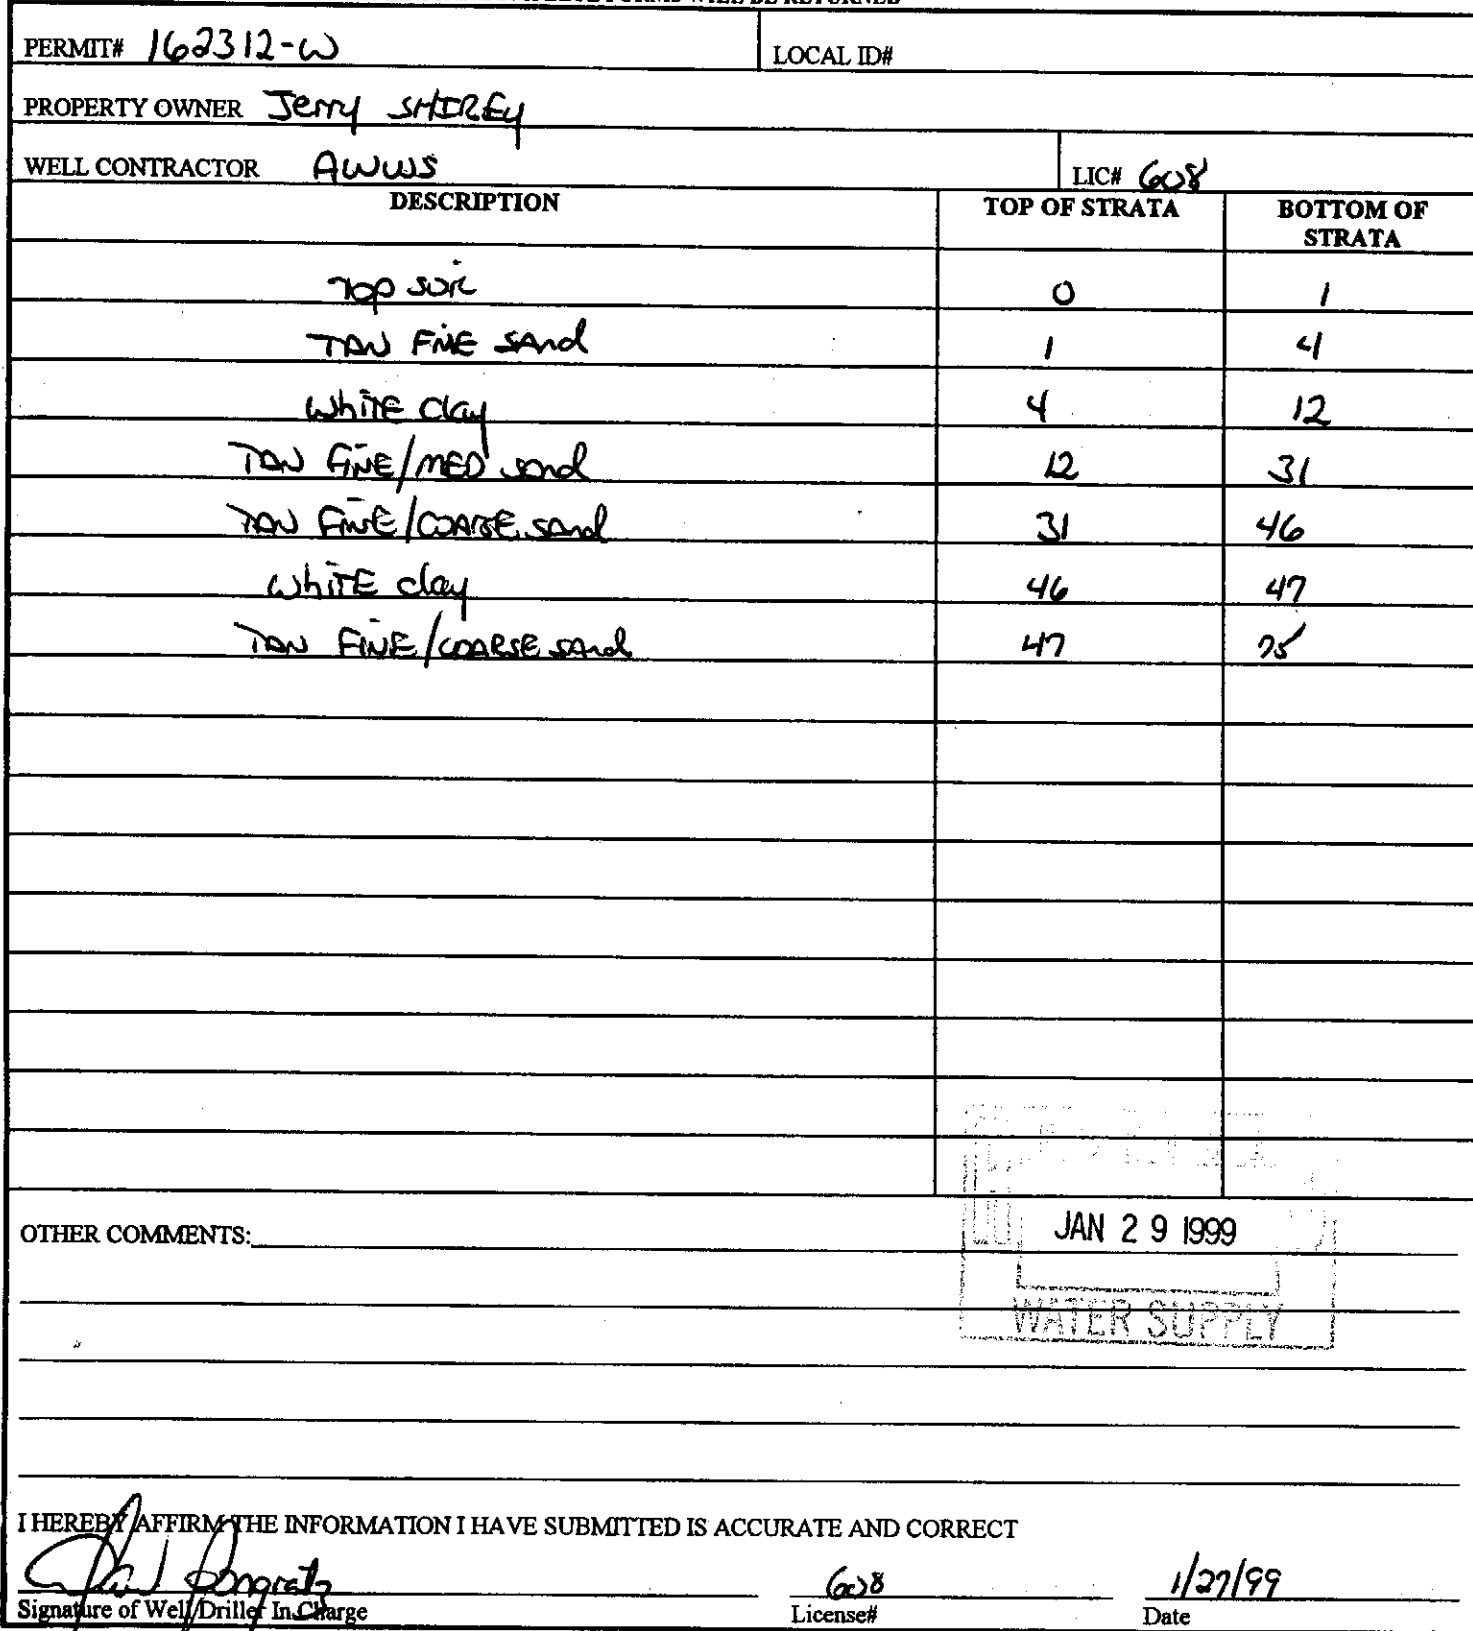 FORMS WILL BE RETURNED
PERMIT# 162312-W LOCAL ID#
PROPERTY OWNER Jerry SHIREY
WELL CONTRACTOR AWWS LIC# 608
DESCRIPTION TOP OF STRATA BOTTOM OF STRATA
Top soil 0 1
TAN FINE SAnd 1 4
WhiTE Clay 4 12
TAN FINE/MED sand 12 31
TAN FINE/COARSE SAnd 31 46
WhiTE clay 46 47
TAN FINE/COARSE SAnd 47 75
OTHER COMMENTS:
JAN 29 1999
WATER SUPPLY
I HEREBY AFFIRM THE INFORMATION I HAVE SUBMITTED IS ACCURATE AND CORRECT
608 1/27/99
Signature of Well Driller In Charge License# Date